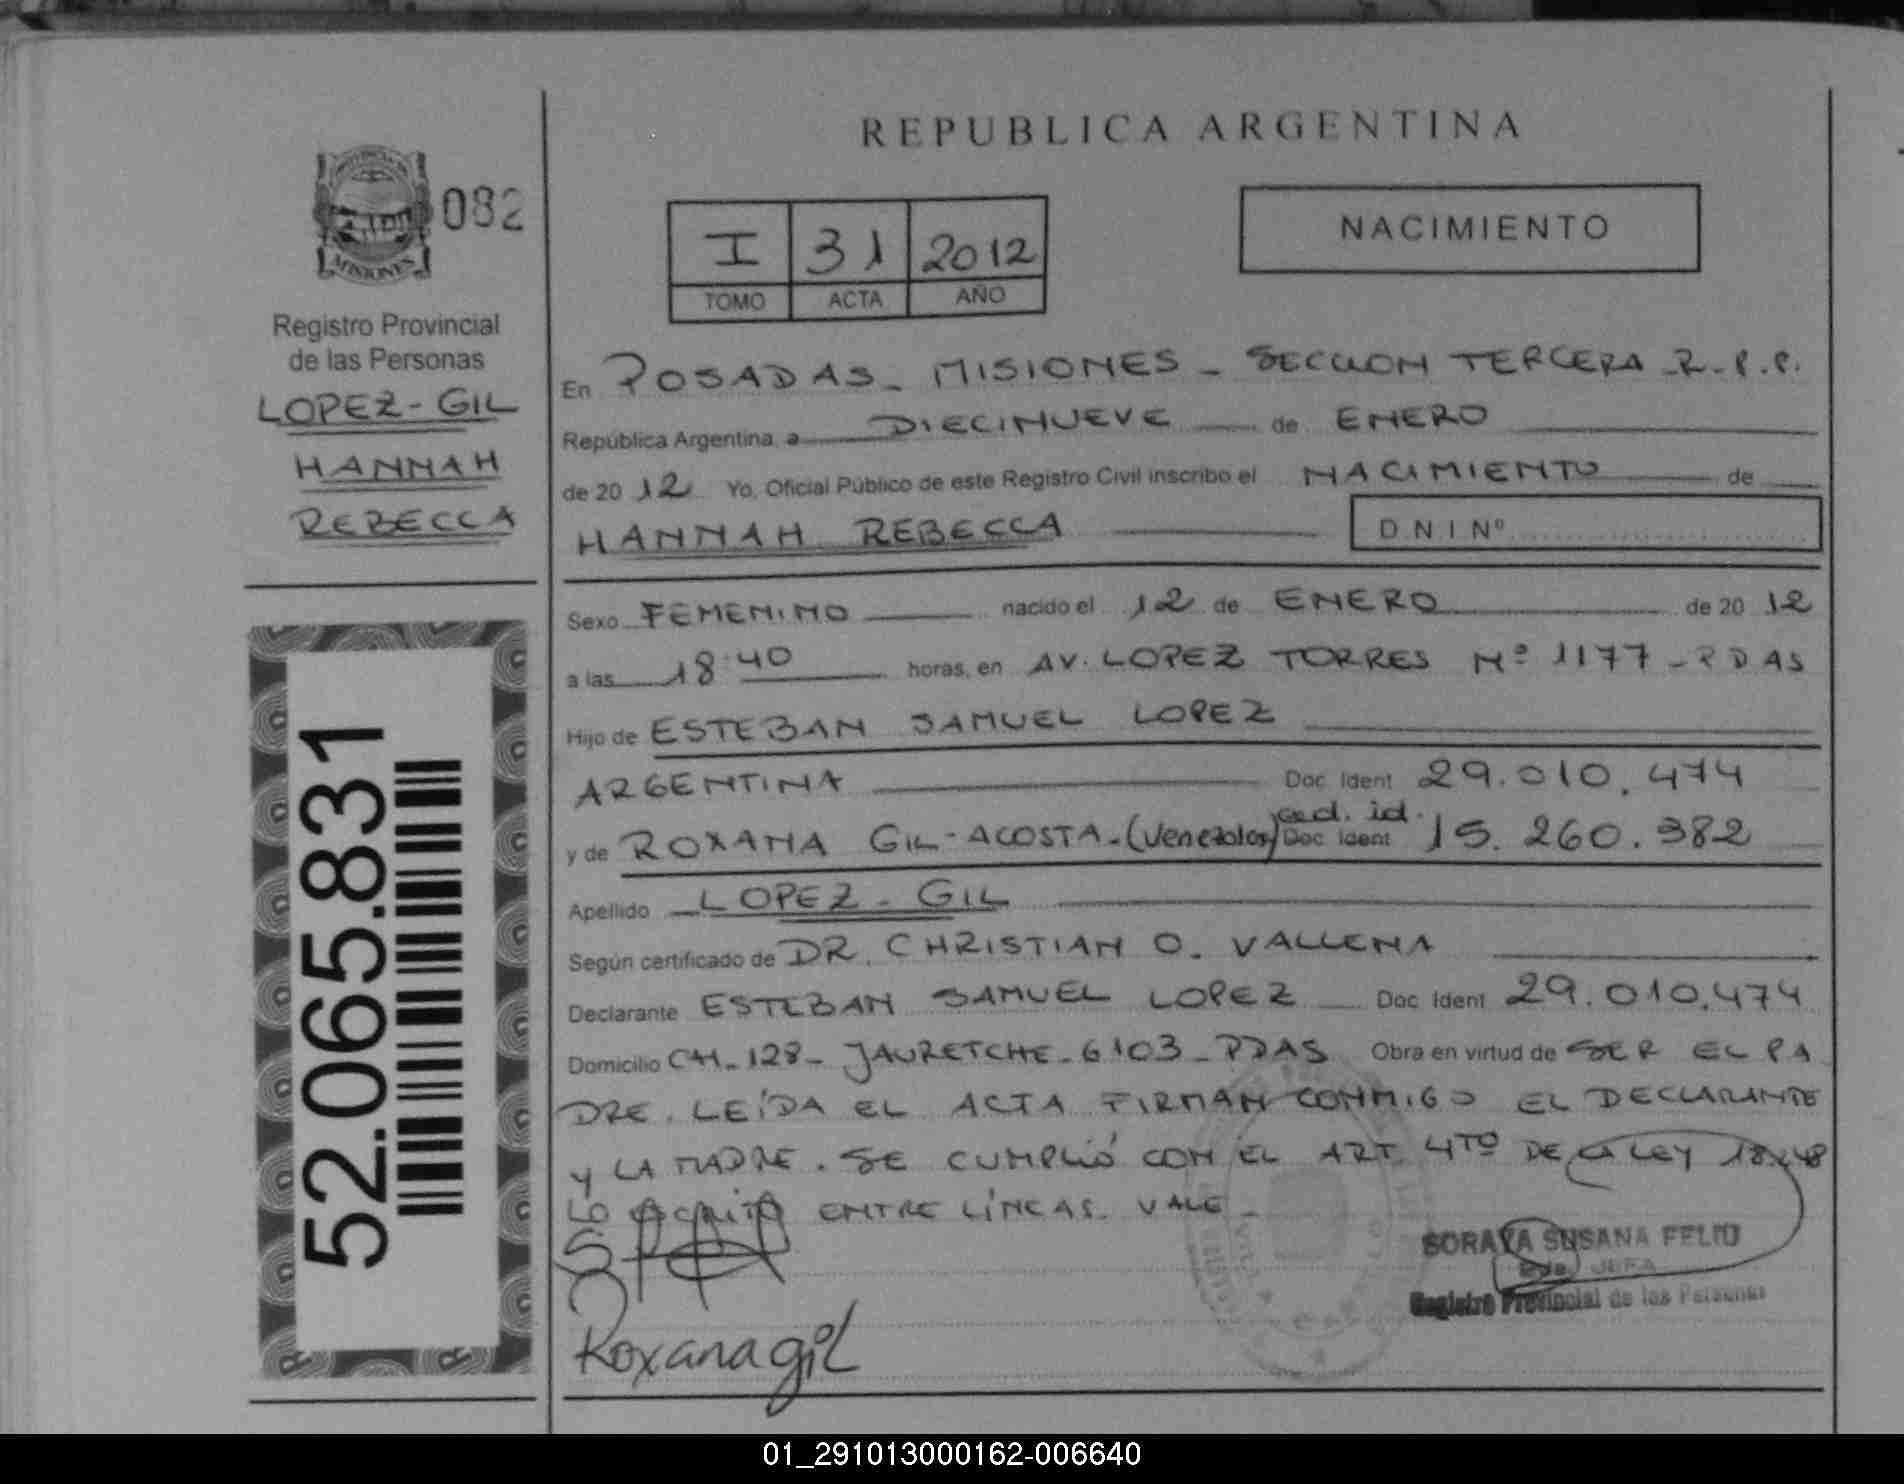 REPUBLICA ARGENTINA
PROVINCIA DE
MISIONES
082
Registro Provincial
de las Personas
LOPEZ - GIL
HANNAH
REBECCA
52.065.831
I 31 2012
TOMO ACTA AÑO
NACIMIENTO
En POSADAS - MISIONES - SECCION TERCERA - R.P.P.
República Argentina, a DIECINUEVE de ENERO
de 20 12 Yo, Oficial Público de este Registro Civil inscribo el NACIMIENTO de
HANNAH REBECCA D N I Nº
Sexo FEMENINO nacido el 12 de ENERO de 20 12
a las 18:40 horas, en AV. LOPEZ TORRES Nº 1177 - PDAS
Hijo de ESTEBAN SAMUEL LOPEZ
ARGENTINA Doc Ident 29.010.474
ced. id.
y de ROXANA GIL - ACOSTA - (Venezolana) Doc Ident 15.260.382
Apellido LOPEZ - GIL
Según certificado de DR. CHRISTIAN O. VALLENA
Declarante ESTEBAN SAMUEL LOPEZ Doc Ident 29.010.474
Domicilio CH - 128 - JAURETCHE - 6103 - PDAS Obra en virtud de SER EL PA
DRE. LEÍDA EL ACTA FIRMAN CONMIGO EL DECLARANTE
Y LA MADRE. SE CUMPLIÓ CON EL ART. 4TO DE LA LEY 18.248
LO ESCRITO ENTRE LÍNEAS. VALE -
SORAYA SUSANA FELIU
JEFA
Registro Provincial de las Personas
Roxana gil
01_291013000162-006640